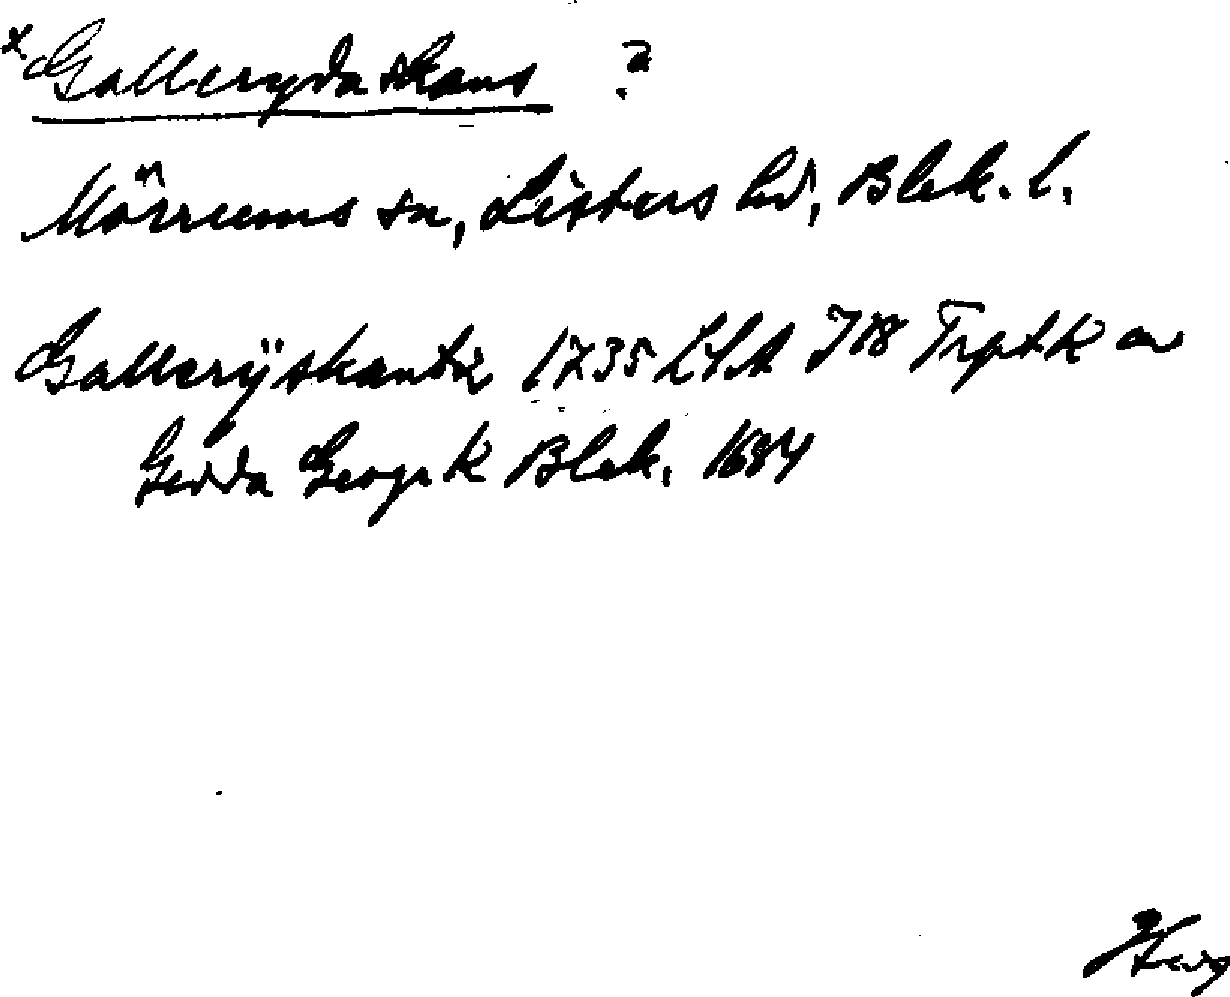 x. Galleryda skans ?
Mörrums sn, Listers hd, Blek. l.
Gallerÿskantz 1735 LSA J 18 Trptk av
Gedda Geogr K Blek. 1684